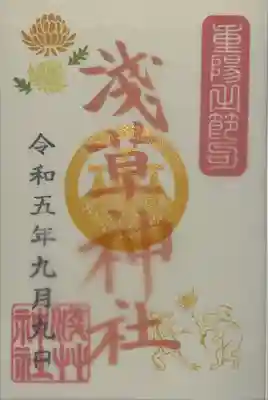 重陽之節句
浅草神社
令和五年九月九日
浅草
神社